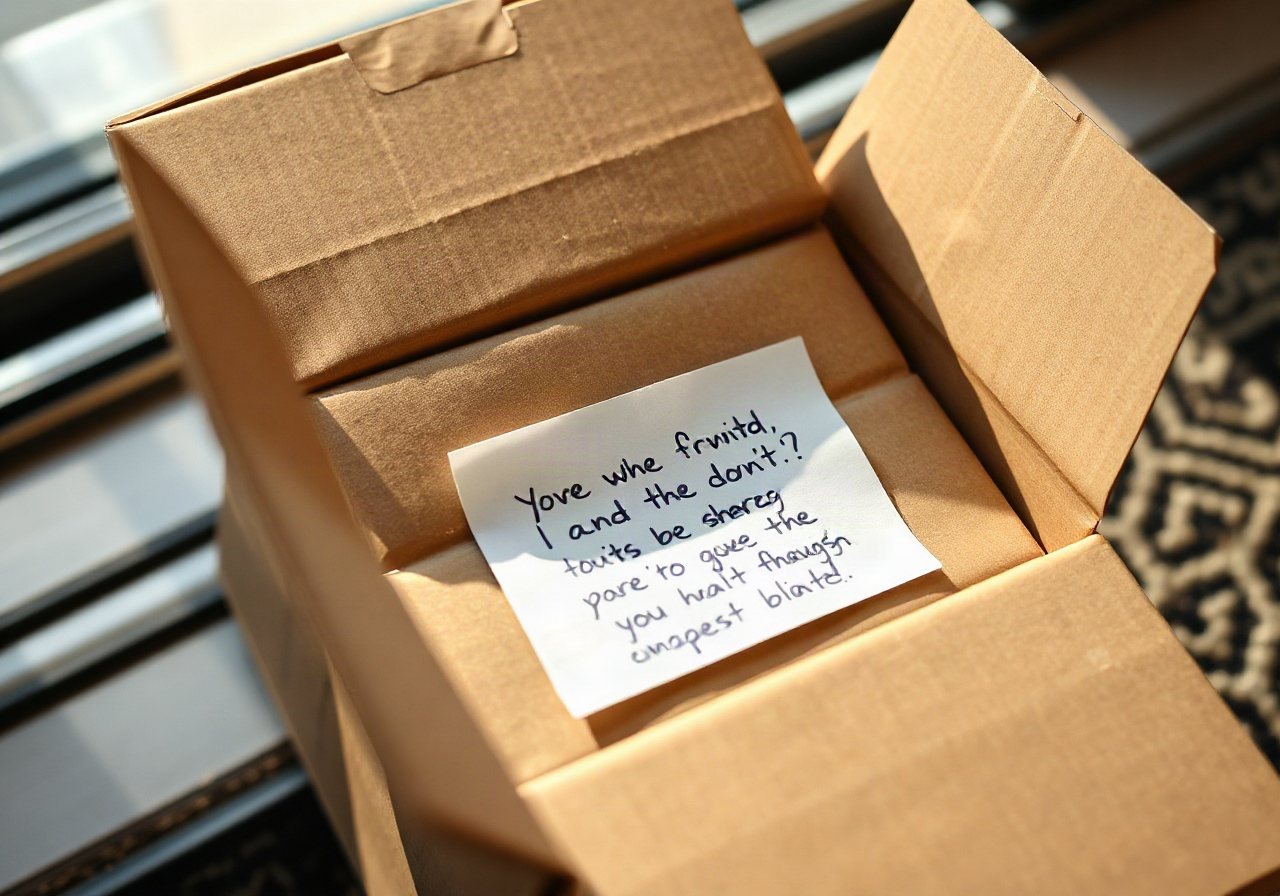 Yove whe frwiitd,
I and the don't.?
touts be sharezg
pare to goee the
you hralt fhaugsn
onapest blantd..